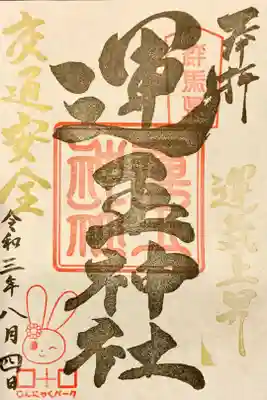 奉拝
群馬県
運気上昇
運玉神社
交通安全
令和三年八月四日
こんにゃくパーク